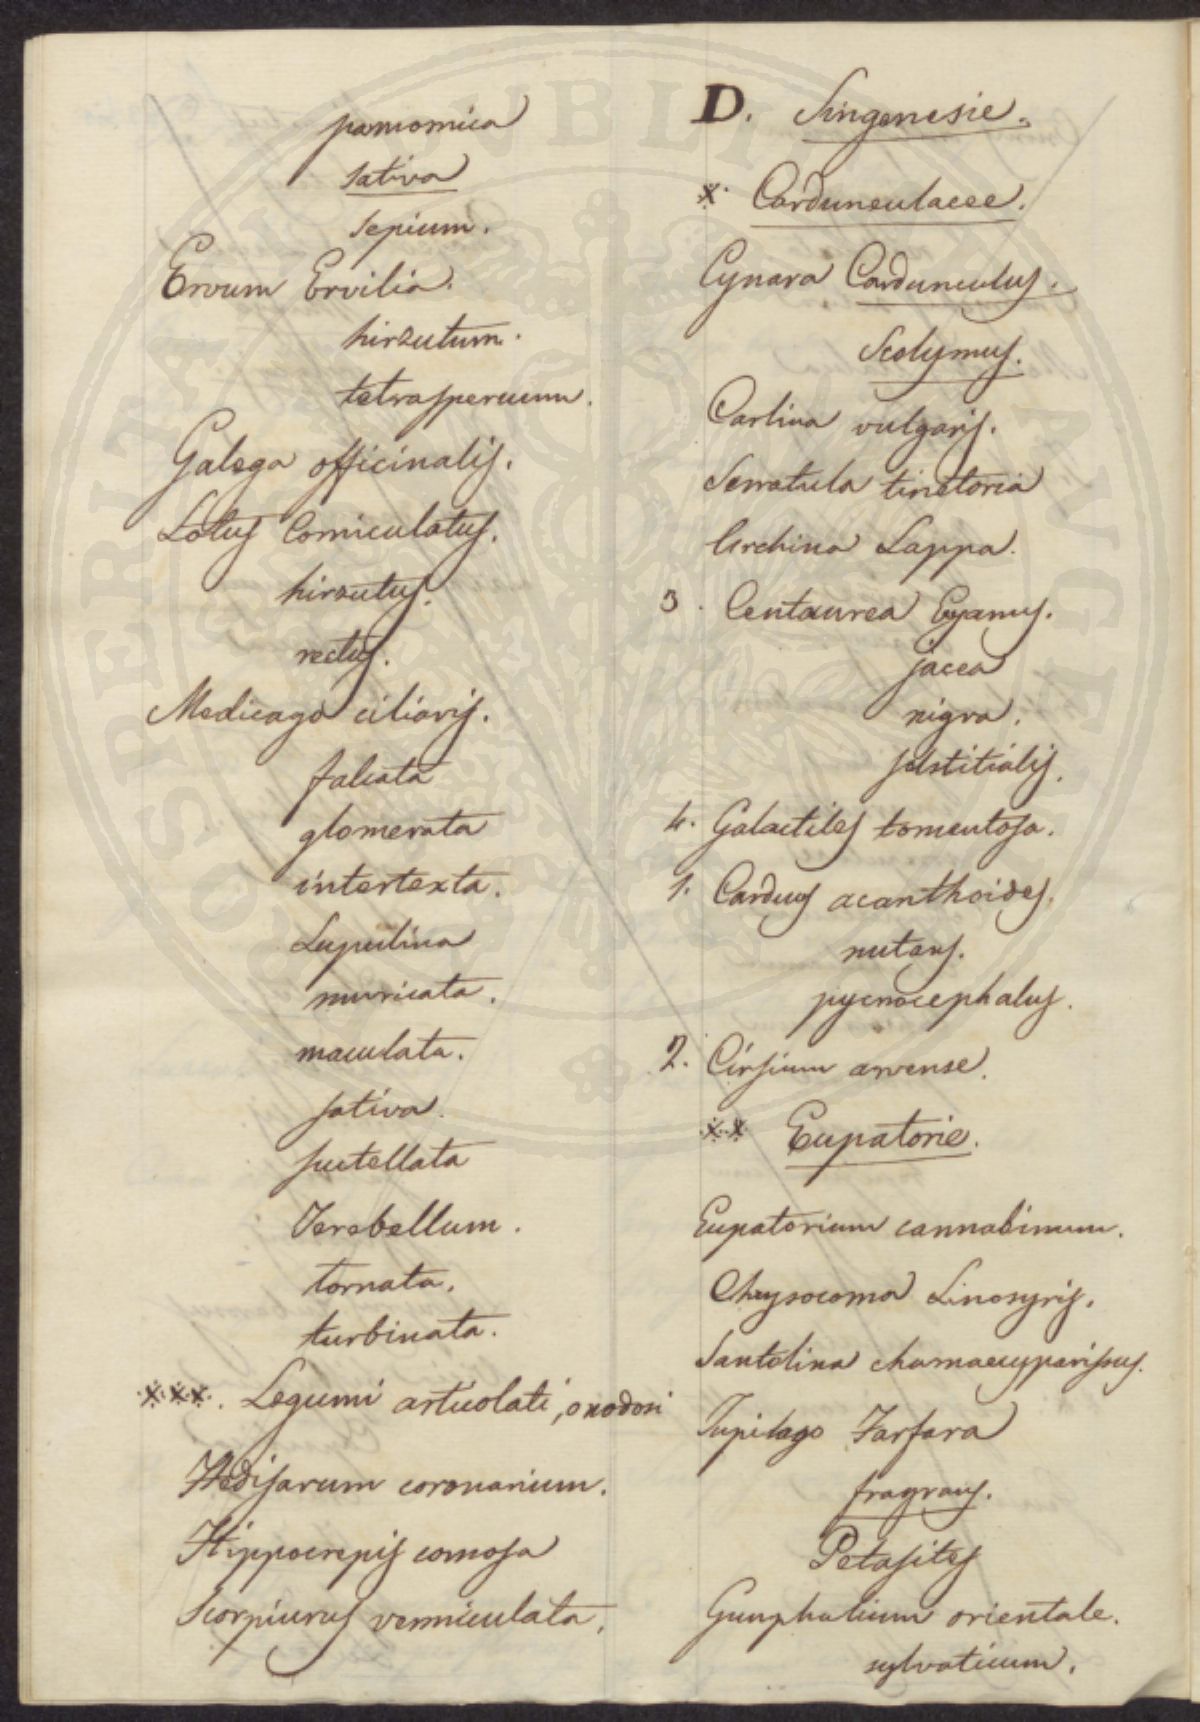 pannonica
sativa
sepium.
Ervum Ervilia.
hirsutum.
tetraspermum.
Galega officinalis.
Lotus Corniculatus.
hirsutus.
rectus.
Medicago ciliaris.
falcata
glomerata
intertexta.
Lupulina
muricata.
maculata.
sativa.
scutellata
Terebellum.
tornata.
turbinata.
***. Legumi articolati, o nodosi
Hedisarum coronarium.
Hippocrepis comosa
Scorpiurus vermiculata.
D. Singenesie.
*. Cardunculacee.
Cynara Cardunculus.
Scolymus.
Carlina vulgaris.
Serratula tinctoria
Arctium Lappa.
3. Centaurea Cyanus.
jacea
nigra.
solstitialis.
4. Galactites tomentosa.
1. Carduus acanthoides.
nutans.
pycnocephalus.
2. Cirsium arvense.
** Eupatorie.
Eupatorium cannabinum.
Chrysocoma Linosyris.
Santolina chamaecyparissus.
Tussilago Farfara
fragrans.
Petasites
Gnaphalium orientale.
sylvaticum.